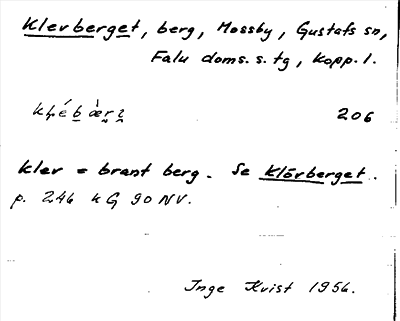 Klevberget, berg, Mossby, Gustafs sn,
Falu doms. s. tg, Kopp. l.
206
klev = brant berg. Se Klövberget.
p. 246 k G 90 NV.
Inge Kvist 1954.